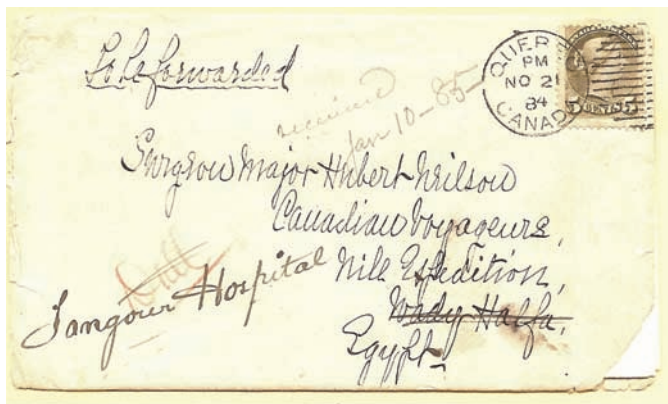 To be forwarded
QUEBEC
PM
NO 21
84
CANADA
5 CENTS 5
received
Jan 10-85-
Surgeon Major Hubert Neilson
Canadian Voyageurs,
Nile Expedition,
Wady Halfa,
Egypt-
Dall
Tangour Hospital